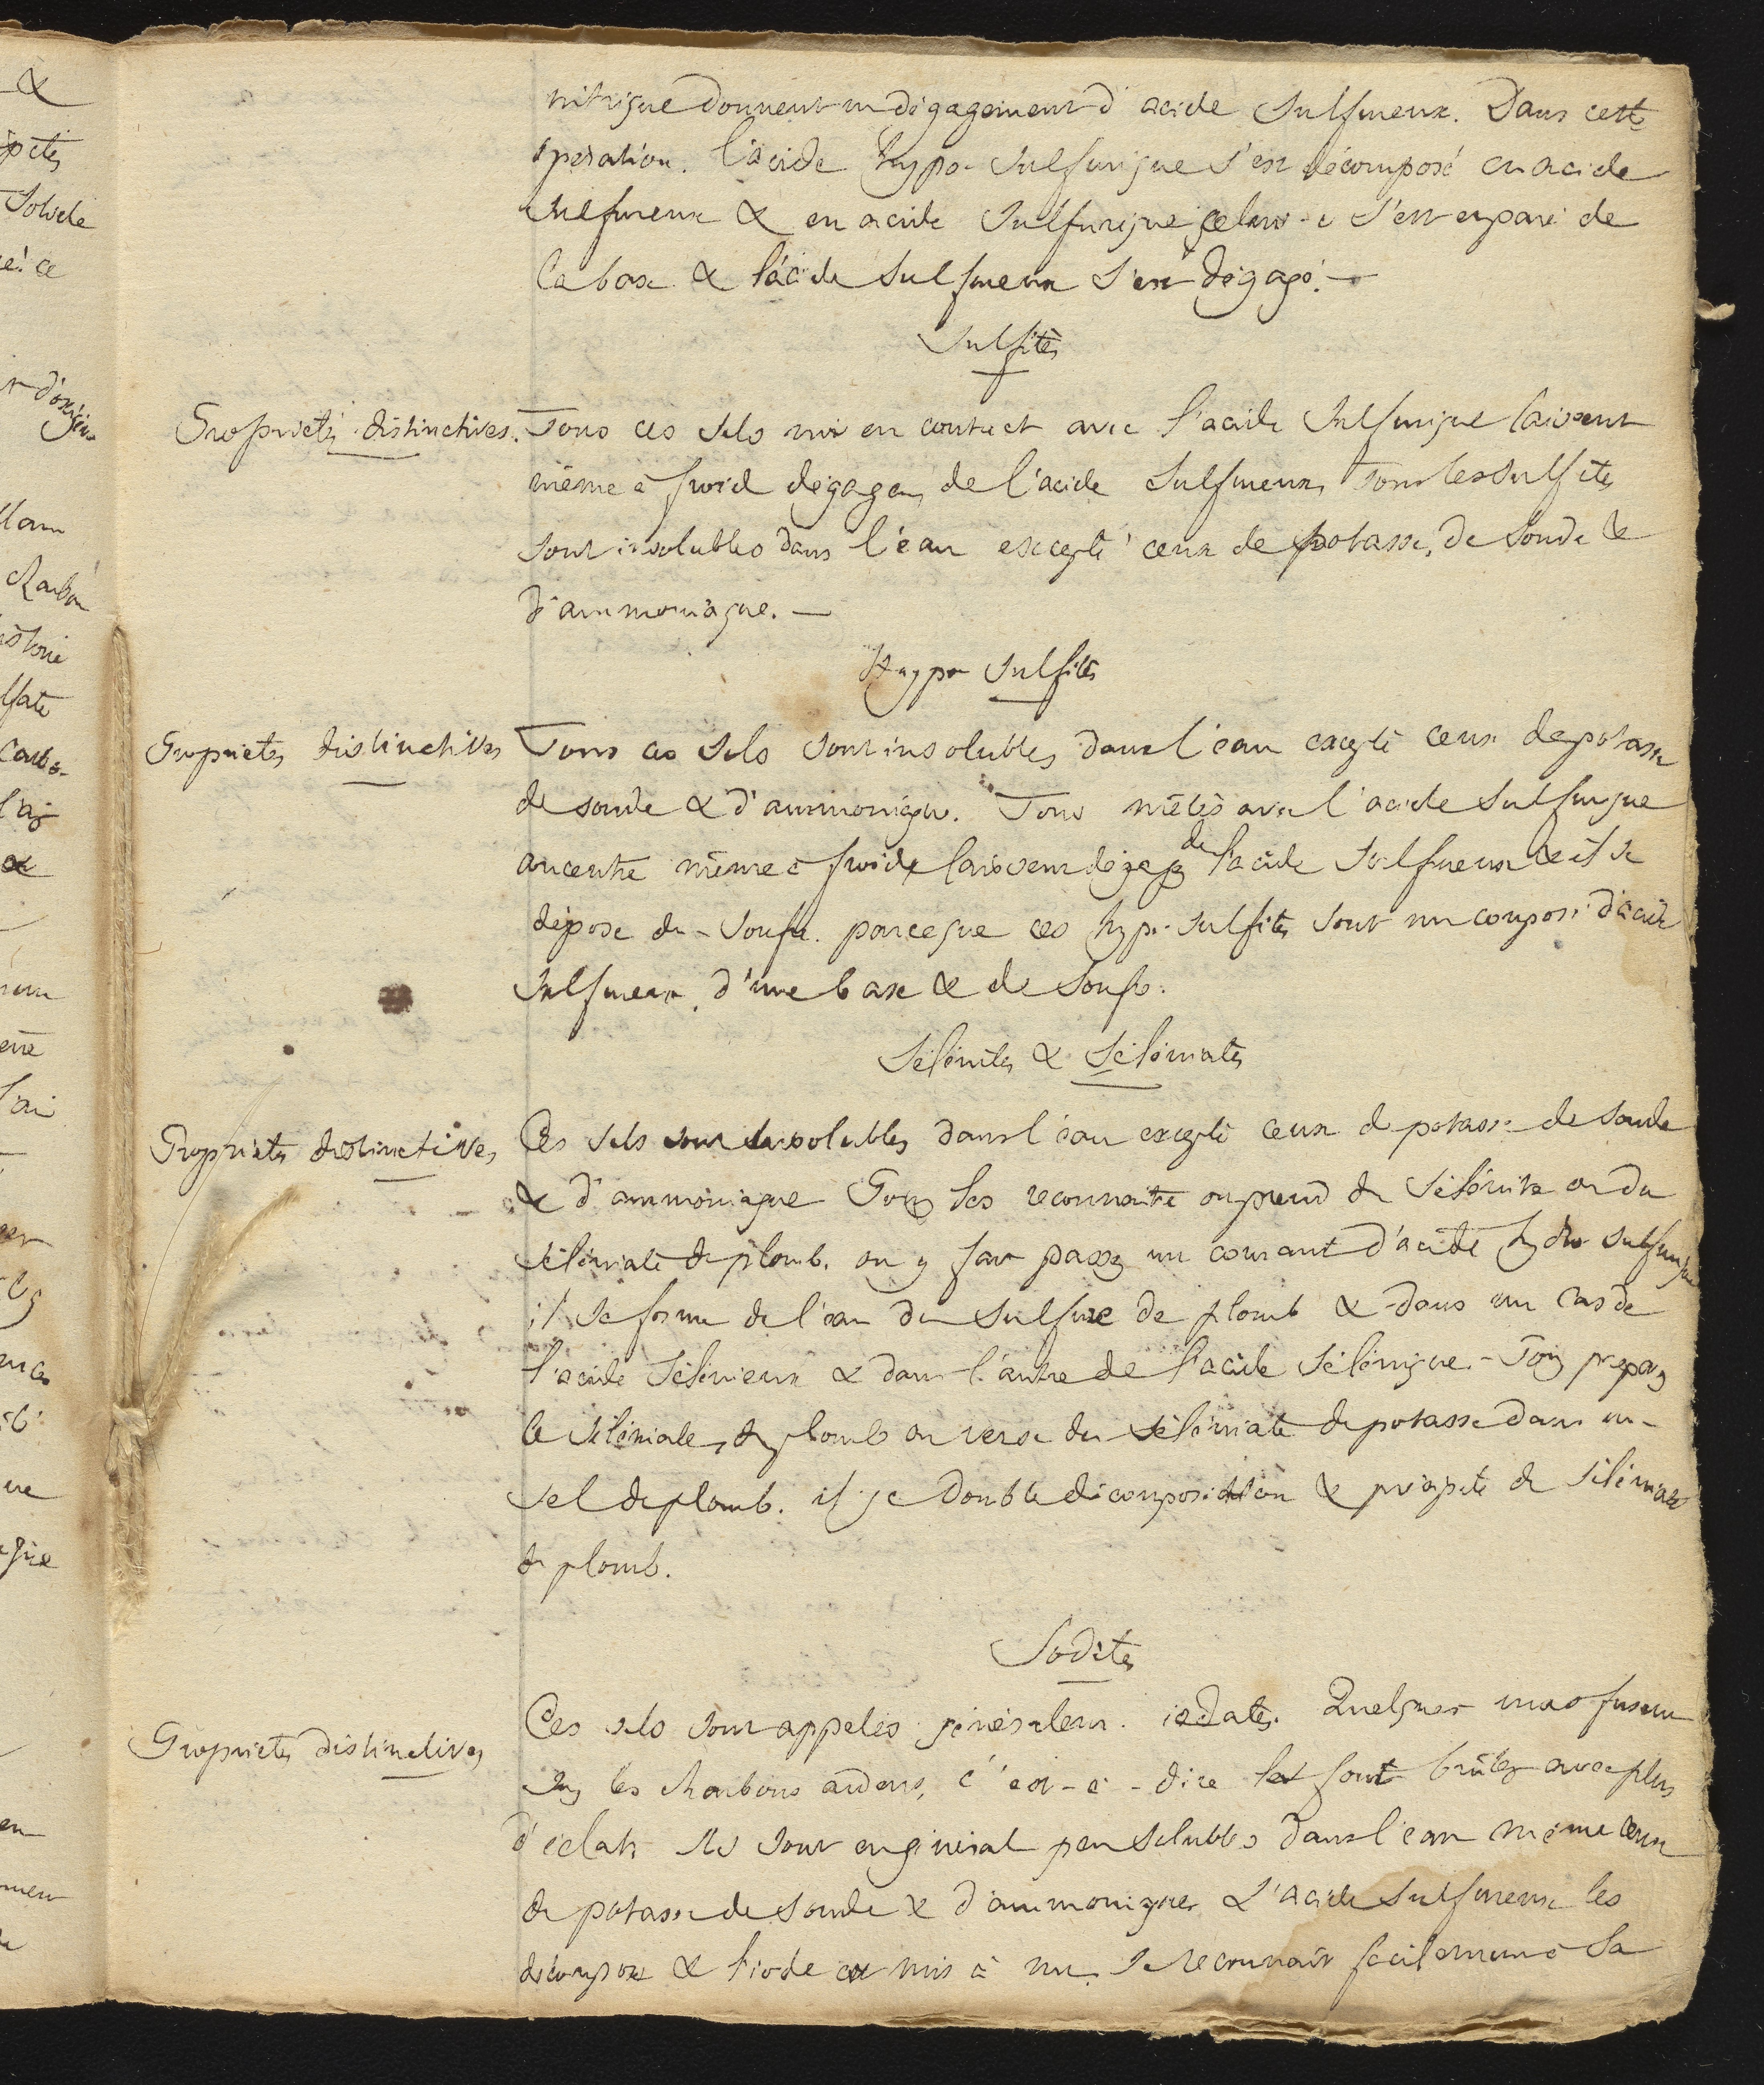 nitrique donnent un dégagement d'acide sulfureux. Dans cette
opération. l'acide hypo-sulfurique s'est décomposé en acide
sulfureux & en acide sulfurique celui-ci s'est emparé de
la base & l'acide sulfureux s'est dégagé. —
Sulfites
Propriétés distinctives. Tous ces sels mis en contact avec l'acide sulfurique laissent
même à froid dégager de l'acide sulfureux, tous les sulfites
sont insolubles dans l'eau excepté ceux de potasse, de soude &
d'ammoniaque. —
Hypo sulfites
Propriétés distinctives Tous ces sels sont insolubles dans l'eau excepté ceux de potasse
de soude & d'ammoniaque. Tous mêlés avec l'acide sulfurique
concentré même à froid laissent dégager de l'acide sulfureux & il se
dépose du soufre. parceque ces hypo-sulfites sont un composé d'acide
sulfureux, d'une base & de soufre.
Sélénites & Séléniates
Propriétés distinctives Ces sels sont insolubles dans l'eau excepté ceux de potasse de soude
& d'ammoniaque Pour les reconnaitre on prend du sélénite ou du
séléniate de plomb. on y fait passer un courant d'acide hydro sulfurique
il se forme de l'eau du sulfure de plomb & dans un cas de
l'acide sélénieux & dans l'autre de l'acide sélénique. - Pour préparer
le séléniate de plomb on verse du séléniate de potasse dans un
sel de plomb. il y a double décomposition & précipité de séléniate
de plomb.
Iodates
Propriétés distinctives Ces sels sont appelés iodates. Quelques uns fusent
sur les charbons ardens, c'est-à-dire les font brûler avec plus
d'éclat. Ils sont en général peu solubles dans l'eau même ceux
de potasse de soude & d'ammoniaque L'acide sulfureux les
décompose & l'iode est mis à nu. Se reconnait facilement à sa
&
Solide
ce
d'oxigène
Charbon